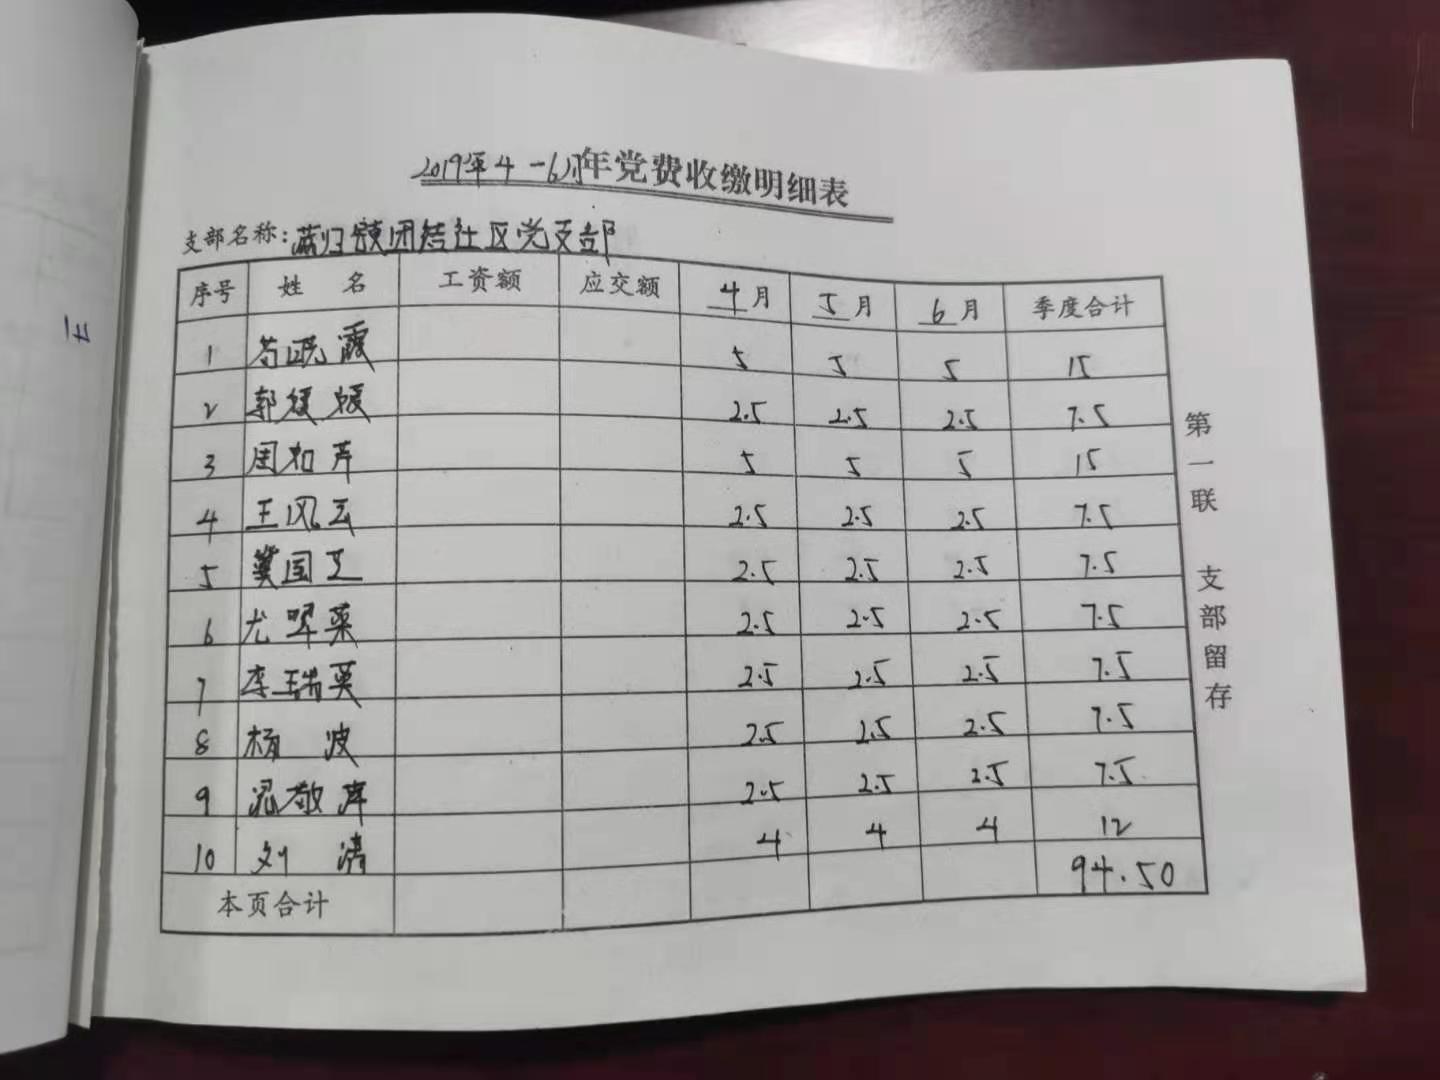 2019年4-6月年党费收缴明细表
支部名称：蒲归镇团结社区党支部
序号 姓名 工资额 应交额 4月 5月 6月 季度合计
1 苟晓霞 5 5 5 15
2 郭媛媛 2.5 2.5 2.5 7.5
3 周和芹 5 5 5 15
4 王风云 2.5 2.5 2.5 7.5
5 冀国芝 2.5 2.5 2.5 7.5
6 尤翠荣 2.5 2.5 2.5 7.5
7 李瑞英 2.5 2.5 2.5 7.5
8 杨波 2.5 2.5 2.5 7.5
9 敬萍 2.5 2.5 2.5 7.5
10 刘清 4 4 4 12
本页合计 94.50
第一联 支部留存